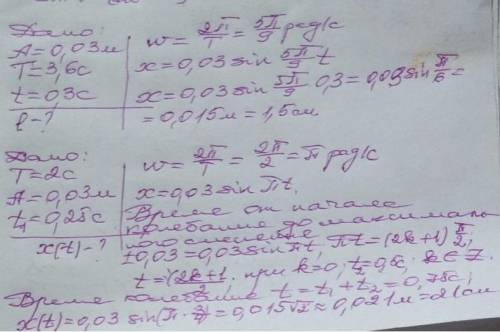 Дано:
A=0,03м
T=3,6с
t=0,3с
l-?
w= 2π/T = 5π/9 рад/с
x=0,03 sin 5π/9 t
x=0,03 sin 5π/9 0,3=0,03 sin π/6 =
=0,015м=1,5см
Дано:
T=2с
A=0,03м
t₁=0,25с
x(t)-?
w= 2π/T = 2π/2 =π рад/с
x=0,03 sin πt.
Время от начала
колебание до максималь
ного смещение
±0,03=0,03 sin πt, πt=(2k+1) π/2,
t= (2k+1)/2, при k=0, t₂=0,5с, k∈Z.
Время колебание t=t₁+t₂=0,75с,
x(t)=0,03 sin(π· 3/4)=0,015√2≈0,021м=21см